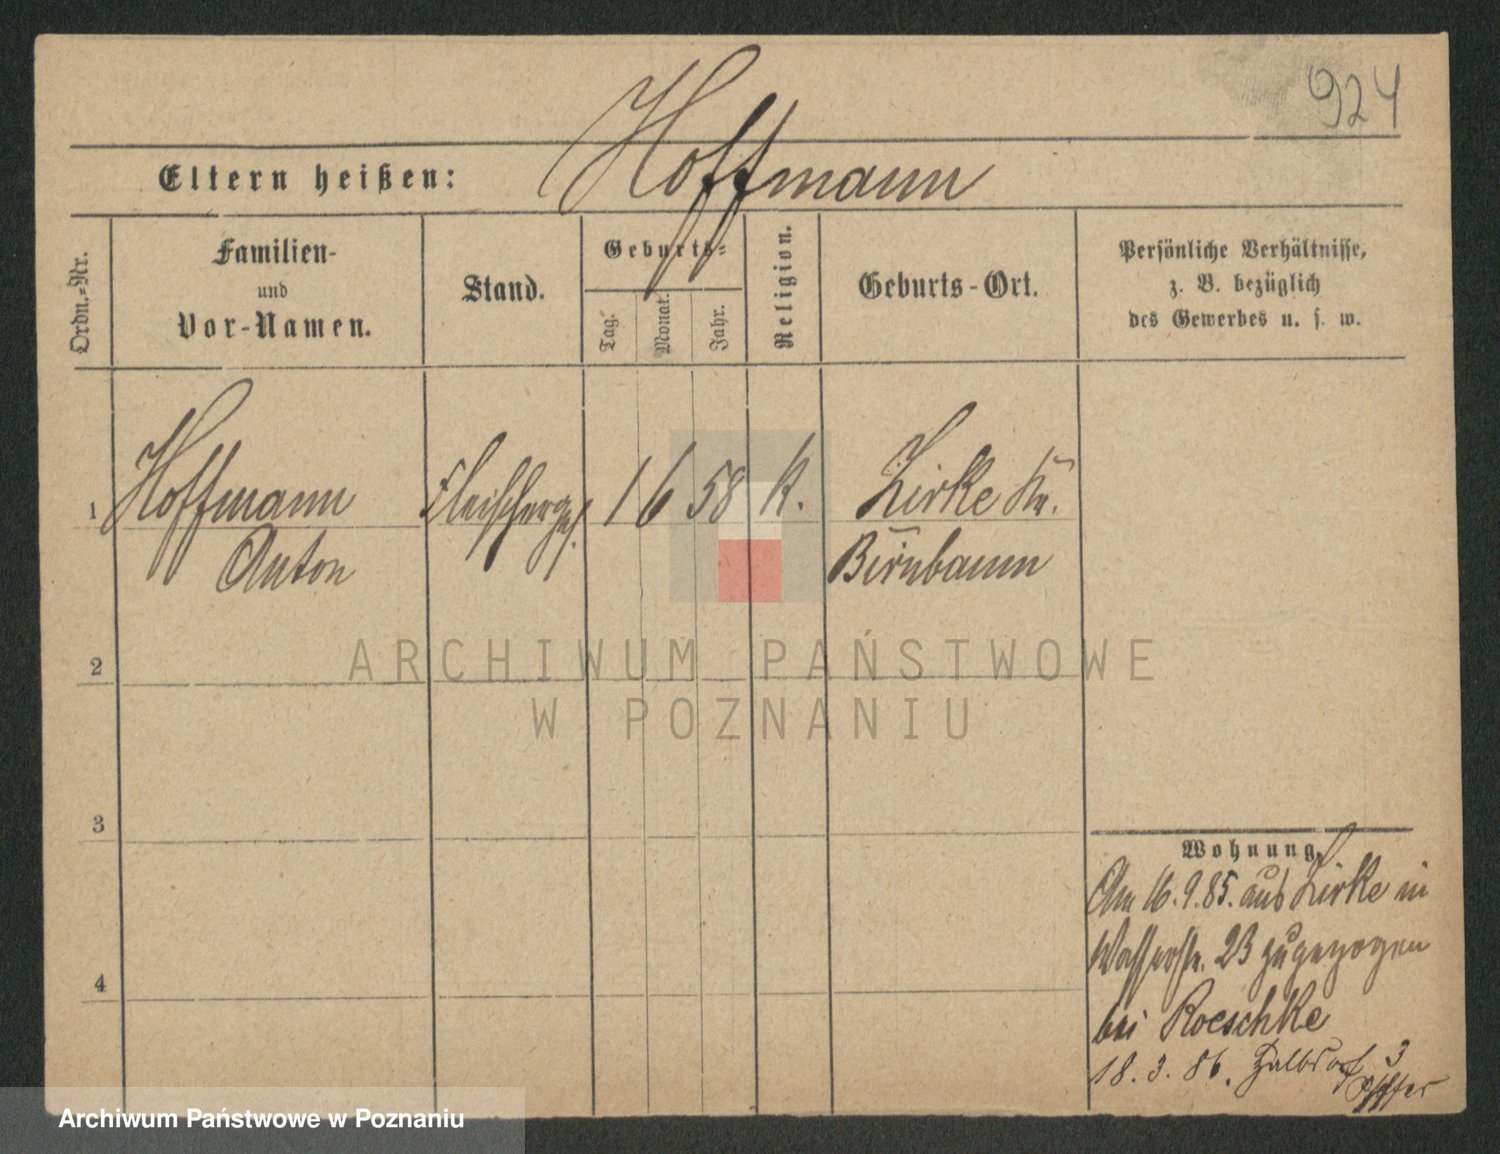 924
Hoffmann
Eltern heißen:
Ordn.-Nr.
Familien-
und
Vor-Namen.
Stand.
Geburts-
Tag.
Monat.
Jahr.
Religion.
Geburts-Ort.
Persönliche Verhältnisse,
z. B. bezüglich
des Gewerbes u. s. w.
1 Hoffmann Fleischerges. 1 6 58 K. Zirke Kr.
Anton Birnbaum
2
ARCHIWUM PAŃSTWOWE
W POZNANIU
3
4
Wohnung.
Am 16.9.85. aus Zirke in
Wasserstr. 23 zugezogen
bei Roeschke
18.3.86. Halbdorf 3
Archiwum Państwowe w Poznaniu